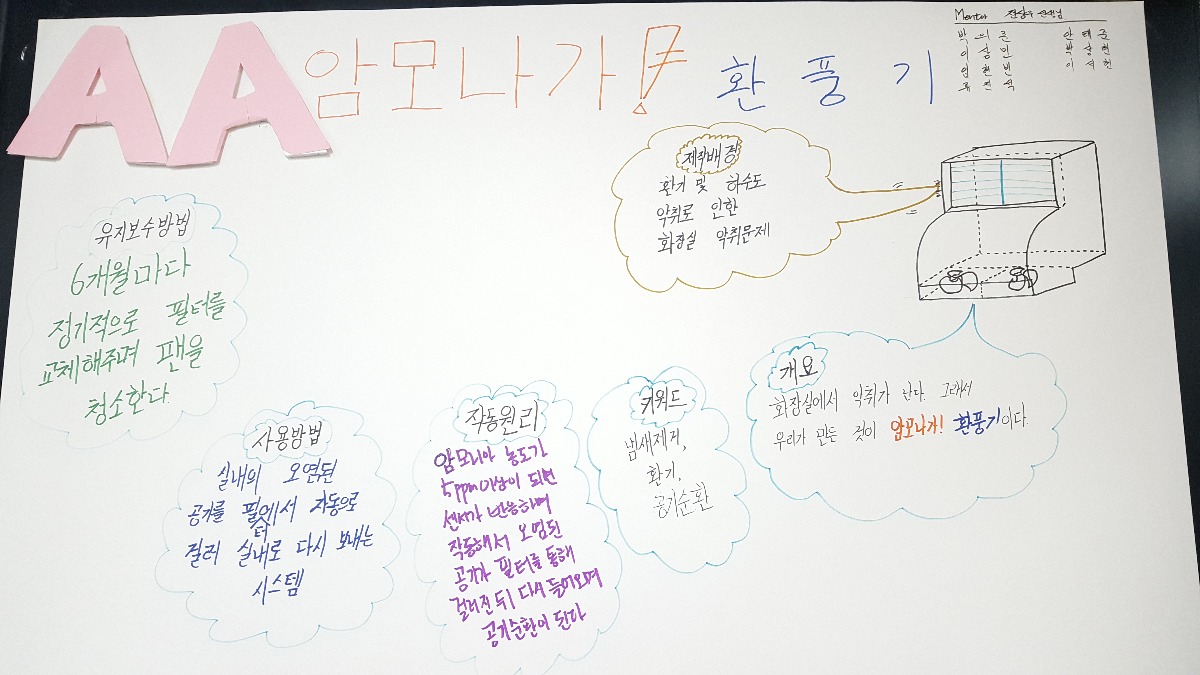 AA 암모나가! 환 풍 기
Mentor 선생님
박
이 상 민
안 태 준
박 상 현
이 석 현
제작배경
환기 및 하수도
악취로 인한
화장실 악취문제
유지보수방법
6개월마다
정기적으로 필터를
교체해주며 팬을
청소한다.
사용방법
실내의 오염된
공기를 필터에서 자동으로
걸러 실내로 다시 보내는
시스템
작동원리
암모니아 농도가
5ppm이상이 되면
센서가 반응하며
작동해서 오염된
공기가 필터를 통해
걸러진 뒤 다시 들어오며
공기순환이 된다
키워드
냄새제거,
환기,
공기순환
개요
화장실에서 악취가 난다. 그래서
우리가 만든 것이 암모나가! 환풍기이다.